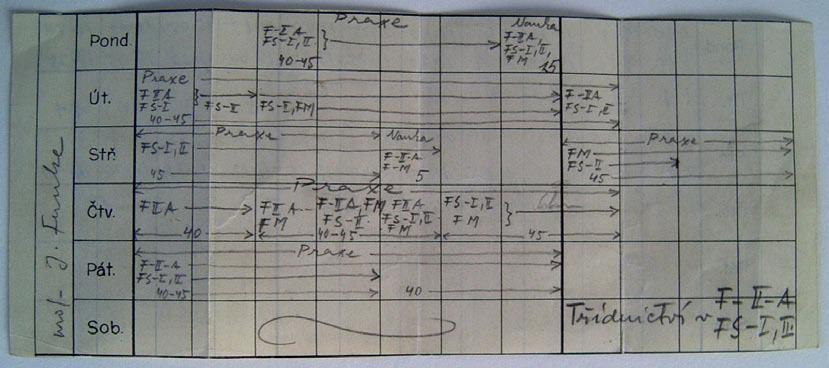 prof. J. Funke
Pond.
Praxe
F-II-A
FS-I, II
40-45
Nauka
F-II-A,
FS-I, II,
FM
25
Út.
Praxe
F II A
FS-I
40-45
FS-II
FS-I, FM
F-II-A
FS-I, II
Stř.
Praxe
FS-I, II
45
Nauka
F-II-A
F-M
5
Praxe
FM
FS-II
45
Čtv.
Praxe
F II A
40
F II A
FM
F-II-A, FM
FS-II
40-45
F II A
FS-I, II
FM
FS-I, II
FM
45
Pát.
Praxe
F-II-A
FS-I, II
40-45
40
Sob.
Třídnictví v F-II-A
FS-I, II